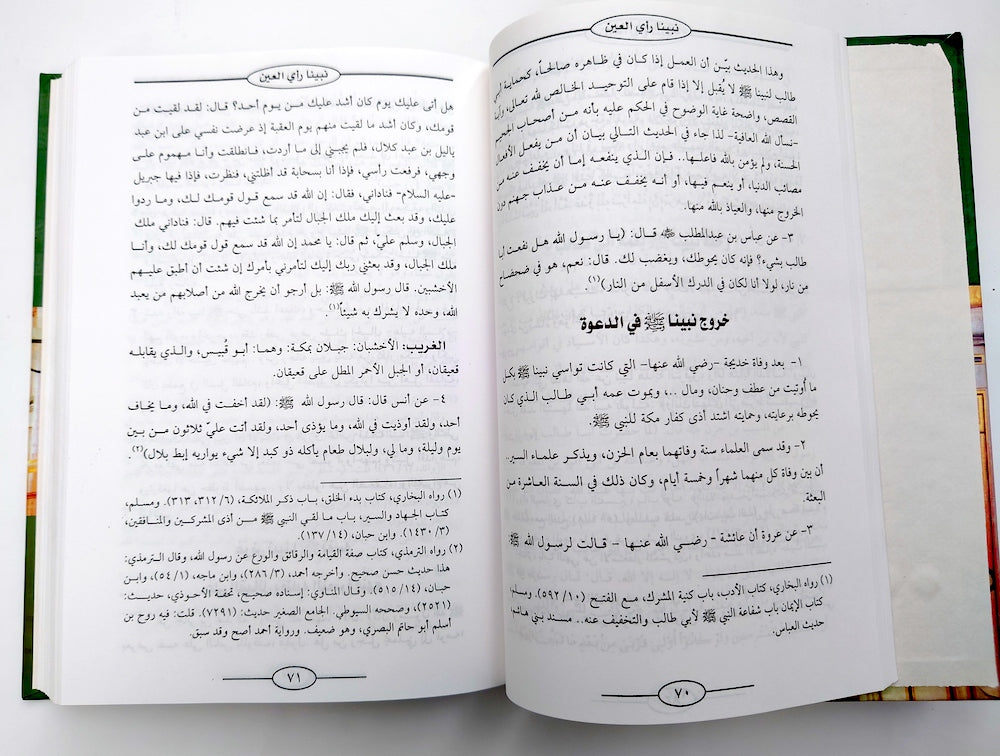 نبينا رأي العين
وهذا الحديث بيّن أن العمل إذا كان في ظاهره صالحاً، كحماية أبي
طالب لنبينا ﷺ لا يُقبل إلا إذا قام على التوحيد الخالص لله تعالى، وآية
القصص، واضحة غاية الوضوح في الحكم عليه بأنه من أصحاب الجحيم
-نسأل الله العافية- لذا جاء في الحديث التالي بيان أن من يفعل الأفعال
الحسنة، ولم يؤمن بالله فاعلها.. فإن الذي ينفعه إما أن يخفف عنه من
مصائب الدنيا، أو ينعم فيها، أو أنه يخفف عنه من عذاب جهنم دون
الخروج منها، والعياذ بالله منها.
٣- عن عباس بن عبدالمطلب ﷺ قال: (يا رسول الله هل نفعت أبا
طالب بشيء؟ فإنه كان يحوطك، ويغضب لك. قال: نعم، هو في ضحضاح
من نار، لولا أنا لكان في الدرك الأسفل من النار)(١).
خروج نبينا ﷺ في الدعوة
١- بعد وفاة خديجة -رضي الله عنها- التي كانت تواسي نبينا ﷺ بكل
ما أُوتيت من عطف وحنان، ومال ..، وبموت عمه أبي طالب الذي كان
يحوطه برعايته، وحمايته اشتد أذى كفار مكة للنبي ﷺ.
٢- وقد سمى العلماء سنة وفاتهما بعام الحزن، ويذكر علماء السير..
أن بين وفاة كل منهما شهراً وخمسة أيام، وكان ذلك في السنة العاشرة من
البعثة.
٣- عن عروة أن عائشة - رضي الله عنها - قالت لرسول الله ﷺ
(١) رواه البخاري، كتاب الأدب، باب كنية المشرك، مع الفتح (١٠/ ٥٩٢). ومسلم،
كتاب الإيمان باب شفاعة النبي ﷺ لأبي طالب والتخفيف عنه.. مسند بني هاشم،
حديث العباس.
٧٠
نبينا رأي العين
هل أتى عليك يوم كان أشد عليك من يوم أحد؟ قال: لقد لقيت من
قومك، وكان أشد ما لقيت منهم يوم العقبة إذ عرضت نفسي على ابن عبد
ياليل بن عبد كلال، فلم يجبني إلى ما أردت، فانطلقت وأنا مهموم على
وجهي، فرفعت رأسي، فإذا أنا بسحابة قد أظلتني، فنظرت، فإذا فيها جبريل
-عليه السلام- فناداني، فقال: إن الله قد سمع قول قومك لك، وما ردوا
عليك، وقد بعث إليك ملك الجبال لتأمر بما شئت فيهم. قال: فناداني ملك
الجبال، وسلم عليّ، ثم قال: يا محمد إن الله قد سمع قول قومك لك، وأنا
ملك الجبال، وقد بعثني ربك إليك لتأمرني بأمرك إن شئت أن أطبق عليهم
الأخشبين. قال رسول الله ﷺ: بل أرجو أن يخرج الله من أصلابهم من يعبد
الله، وحده لا يشرك به شيئاً(١).
الغريب: الأخشبان: جبلان بمكة: وهما: أبو قُبيس، والذي يقابله
قعيقان، أو الجبل الأحمر المطل على قعيقان.
٤- عن أنس قال: قال رسول الله ﷺ: (لقد أخفت في الله، وما يخاف
أحد، ولقد أوذيت في الله، وما يؤذى أحد، ولقد أتت عليّ ثلاثون من بين
يوم وليلة، وما لي، ولبلال طعام يأكله ذو كبد إلا شيء يواريه إبط بلال)(٢).
(١) رواه البخاري، كتاب بدء الخلق، باب ذكر الملائكة، (٦/ ٣١٢، ٣١٣). ومسلم،
كتاب الجهاد والسير، باب ما لقي النبي ﷺ من أذى المشركين والمنافقين،
(٣/ ١٤٣٠). وابن حبان، (١٤/ ١٣٧).
(٢) رواه الترمذي، كتاب صفة القيامة والرقائق والورع عن رسول الله، وقال الترمذي:
هذا حديث حسن صحيح. وأخرجه أحمد، (٣/ ٢٨٦)، وابن ماجه، (١/ ٥٤)، وابن
حبان، (١٤/ ٥١٥). وقال المناوي: إسناده صحيح، تحفة الأحوذي، حديث:
(٢٥٢١)، وصححه السيوطي. الجامع الصغير حديث: (٧٢٩١). قلت: فيه روح بن
أسلم أبو حاتم البصري، وهو ضعيف. ورواية أحمد أصح وقد سبق.
٧١